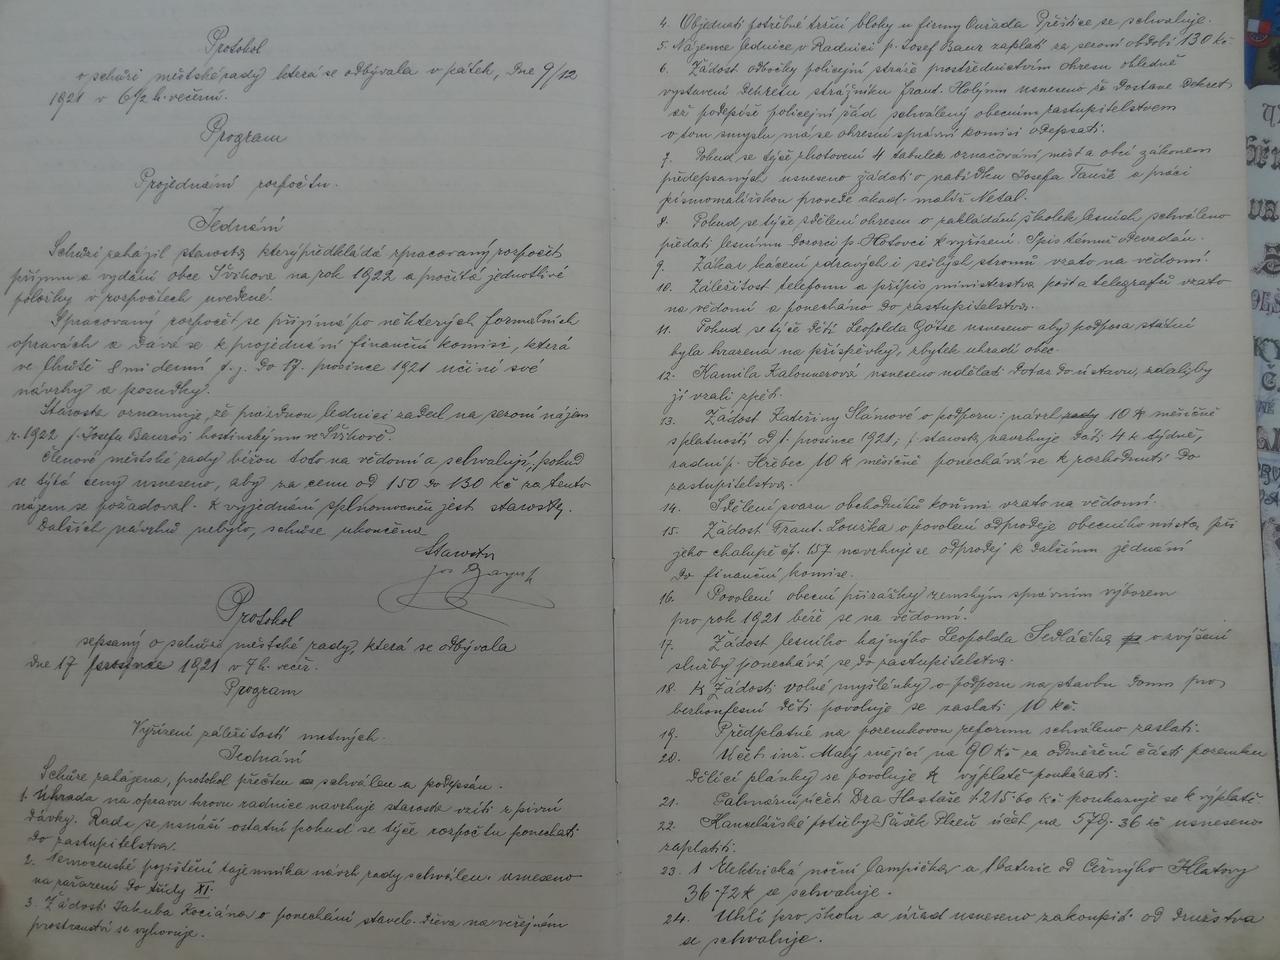 Protokol
o schůzi městské rady která se odbývala v pátek, dne 9/12
1921 v 6 1/2 h. večerní.
Program
Projednání rozpočtu.
Jednání
Schůzi zahájil starosta který předkládá zpracovaný rozpočet
příjmu a vydání obce Švihova na rok 1922 a počítá jednotlivé
položky v rozpočtech uvedené.
Zpracovaný rozpočet se přijímá po některých formálních
opravách a dává se k projednání finanční komisi, která
ve lhůtě 8mi denní t.j. do 17. prosince 1921 učiní své
návrhy a posudky.
Starosta oznamuje, že prázdnou lednici zadal na sezoní nájem
r. 1922 p. Josefu Baurovi hostinskýmu ve Švihově.
Členové městské rady béřou toto na vědomí a schvalují, pokud
se týče ceny usneseno, aby za cenu od 150 do 130 Kč za tento
nájem se požadoval. K vyjednání splnomocněn jest starosta.
Dalších návrhů nebylo, schůze ukončena
Starosta
Jos
Protokol
sepsaný o schůzi městské rady, která se odbývala
dne 17 prosince 1921 v 7 h. več.
Program
Vyřízení záležitostí nutných.
Jednání
Schůze zahájena, protokol přečten schválen a podepsán.
1. Úhrada na opravu krovu radnice navrhuje starosta vzíti z pivní
dávky. Rada se usnáší ostatní pokud se týče rozpočtu ponechati
do zastupitelstva.
2. Nemocenské pojištění tajemníka návrh rady schválen. usneseno
na zařazení do třídy XI.
3. Žádosti Jakuba Kociána o ponechání staveb. dřeva na veřejném
prostranství se vyhovuje.
4. Objednati potřebné tržní bloky u firmy Ouřada Přeštice se schvaluje.
5. Nájemce lednice v Radnici p. Josef Baur zaplatí za sezoní období 130 Kč
6. Žádost odbočky policejní stráže prostřednictvím okresu ohledně
vystavení dekretu strážníku frant. Holýmu usneseno že dostane dekret
až podepíše policejní řád schválený obecním zastupitelstvem
v tom smyslu má se okresní správní komisi odepsati.
7. Pokud se týče zhotovení 4 tabulek označování měst a obcí zákonem
předepsaných usneseno žádati o nabídku Josefa Tauše a práci
písmomalířskou provede akad. malíř Netal.
8. Pokud se týče sdělení okresu o zakládání školek lesních schváleno
předati lesnímu dozorci p. Hotovci k vyřízení. Spis témuž odevzdán.
9. Zákaz kácení zdravých i sešlých stromů vzato na vědomí.
10. Záležitost telefonu a přípis ministerstva pošt a telegrafů vzato
na vědomí a ponecháno do zastupitelstva.
11. Pokud se týče dětí Leopolda Götze usneseno aby podpora státní
byla brazena na příspěvky, zbytek uhradí obec.
12. Kamila Kalounerová usneseno udělati dotaz do ústavu, zdali by
ji vzali zpět.
13. Žádost Kateřiny Slámové o podporu: návrh rady 10 K měsíčně
splatností od 1. prosince 1921; p. starosta navrhuje dáti 4 K týdně,
radní p. Hřebec 10 K měsíčně ponechává se k rozhodnutí do
zastupitelstva.
14. Sdělení svazu obchodníků koňmi vzato na vědomí.
15. Žádost Frant. Loužka o povolení odprodeje obecního místa při
jeho chalupě čp. 157 navrhuje se odprodej k dalšímu jednání
do finanční komise.
16. Povolení obecní přirážky zemským správním výborem
pro rok 1921 béře se na vědomí.
17. Žádost lesního hajnýho Leopolda Sedláčka o zvýšení
služby ponechává se do zastupitelstva.
18. K Žádosti volné myšlénky o podporu na stavbu domu pro
bezkonfesní děti povoluje se zaslati 10 Kč.
19. Předplatné na pozemkovou reformu schváleno zaslati.
20. Účet inž. Malý znějící na 90 Kč za odměření části pozemku
dělící plánky se povoluje k výplatě poukázati.
21. Palmární účet Dra Hostaše 1215.60 Kč poukazuje se k výplatě.
22. Kancelářské potřeby Šášek Plzeň účet na 578.36 Kč usneseno
zaplatiti.
23. 1 Elektrická noční lampička a 1 baterie od Černýho Klatovy
36.72 K se schvaluje.
24. Uhlí pro školu a úřad usneseno zakoupit od družstva
se schvaluje.